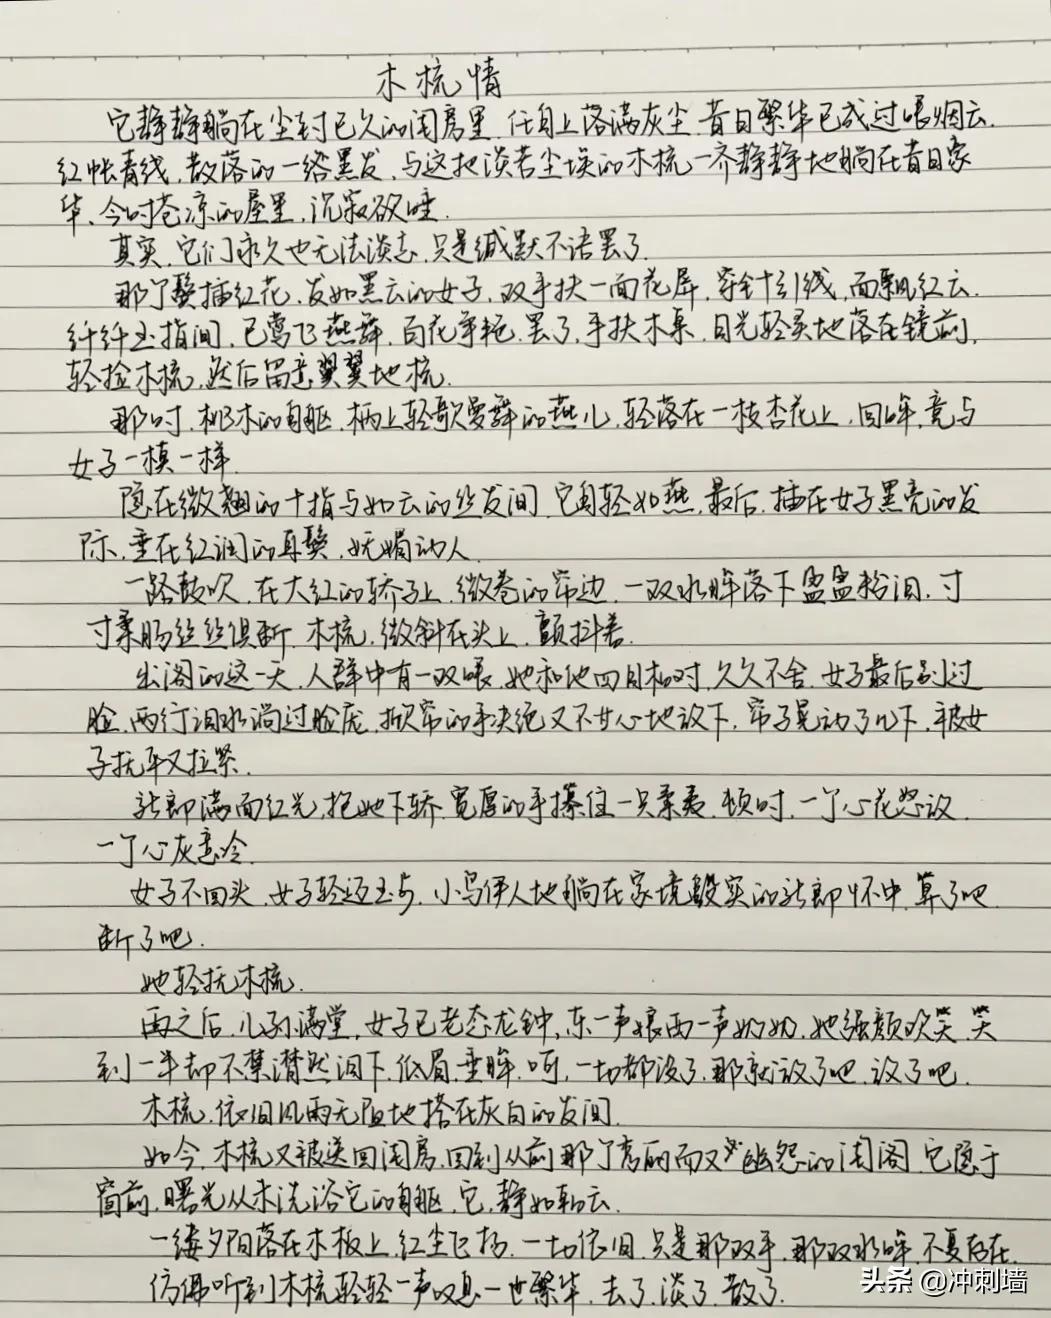 木梳情
它静静躺在尘封已久的闺房里.任身上落满灰尘.昔日繁华已成过眼烟云.
红帐青线.散落的一绺黑发.与这把淡若尘埃的木梳一齐静静地躺在昔日豪
华、今时苍凉的屋里.沉寂欲睡.
其实.它们永久也无法淡忘.只是缄默不语罢了.
那个鬓插红花.发如黑云的女子.双手扶一面花屏.穿针引线.面飘红云.
纤纤玉指间.已莺飞燕舞.百花争艳.罢了.手扶木桌.目光轻灵地落在镜前,
轻捡木梳.然后留意翼翼地梳.
那时.桃木的身躯.柄上轻歌曼舞的燕儿.轻落在一枝杏花上.回眸.竟与
女子一模一样.
隐在微翘的十指与如云的丝发间.它身轻如燕.最后.插在女子黑亮的发
际.垂在红润的耳鬓.妩媚动人.
一路鼓吹.在大红的轿子上.微卷的帘边.一双水眸落下盈盈粉泪.寸
寸柔肠丝丝俱断.木梳.微斜在头上.颤抖着.
出阁的这一天.人群中有一双眼.她和他四目相对.久久不舍.女子最后别过
脸.两行泪水淌过脸庞.掀帘的手决绝又不甘心地放下.帘子晃动了几下.被女
子抚平又拉紧.
新郎满面红光.抱她下轿.宽厚的手攥住一只柔荑.顿时.一个心花怒放.
一个心灰意冷.
女子不回头.女子轻迈玉步.小鸟伊人地躺在家境殷实的新郎怀中.算了吧.
断了吧.
她轻抚木梳.
再之后.儿孙满堂.女子已老态龙钟.东一声娘西一声奶奶.她强颜欢笑.笑
到一半却不禁潸然泪下.低眉.垂眸.呵.一切都没了.那就放了吧.放了吧.
木梳.依旧风雨无阻地搭在灰白的发间.
如今.木梳又被送回闺房.回到从前那个秀丽而又幽怨的闺阁.它隐于
窗前.曙光从未洗浴它的身躯.它.静如轻云.
一缕夕阳落在木板上.红尘飞扬.一切依旧.只是那双手.那双水眸.不复存在.
仿佛听到木梳轻轻一声叹息.一世繁华.去了.淡了.散了.
头条 @冲刺墙